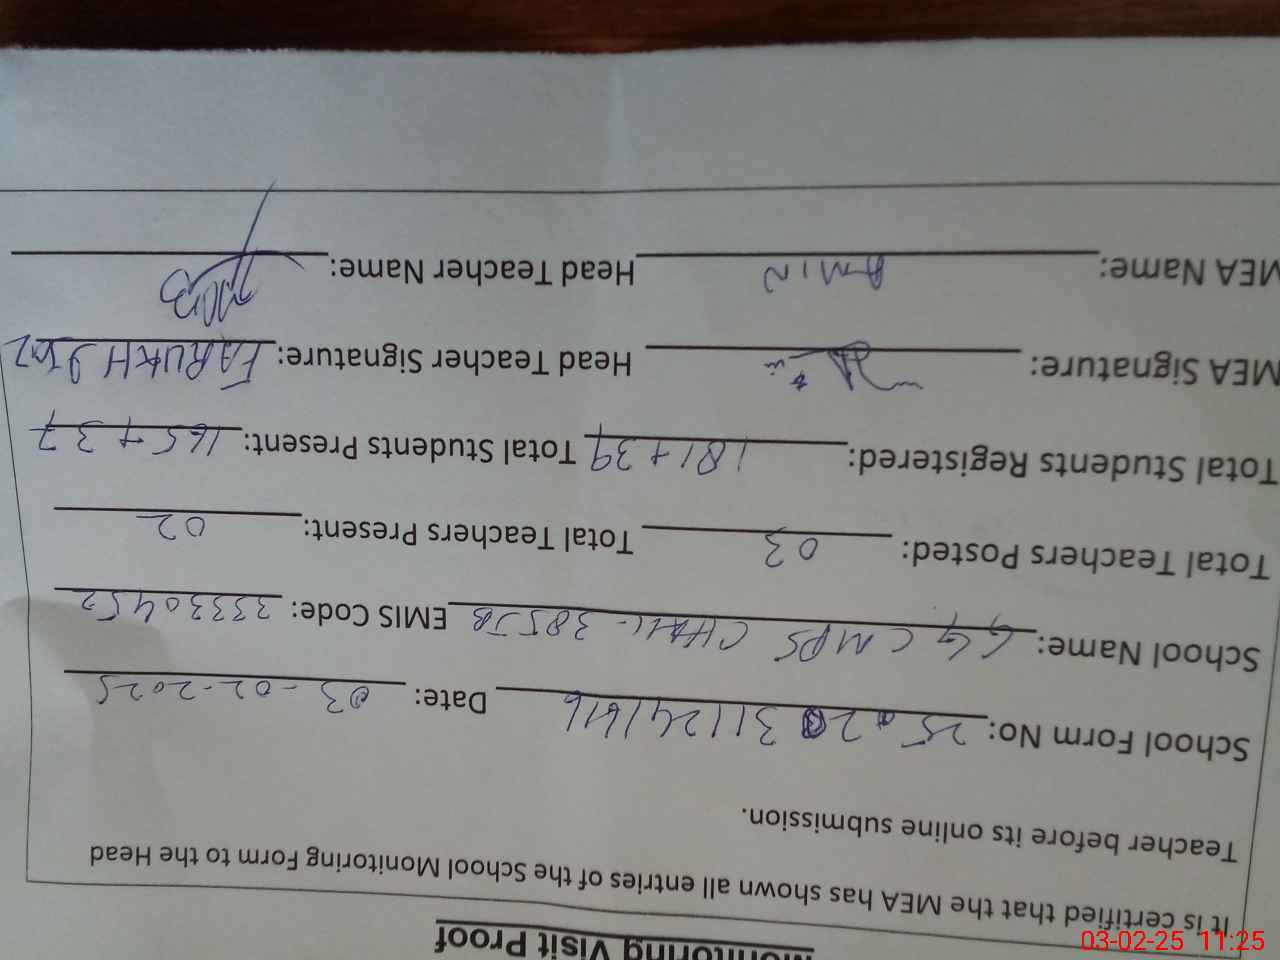 Monitoring Visit Proof
It is certified that the MEA has shown all entries of the School Monitoring Form to the Head
Teacher before its online submission.
School Form No: Date: 03-02-2025
School Name: GG CMPS CHAK- 385 JB EMIS Code: 33330452
Total Teachers Posted: 03 Total Teachers Present: 02
Total Students Registered: 181+39 Total Students Present: 165+37
MEA Signature: Head Teacher Signature: FARUKH
MEA Name: AMIN Head Teacher Name:
03-02-25 11:25